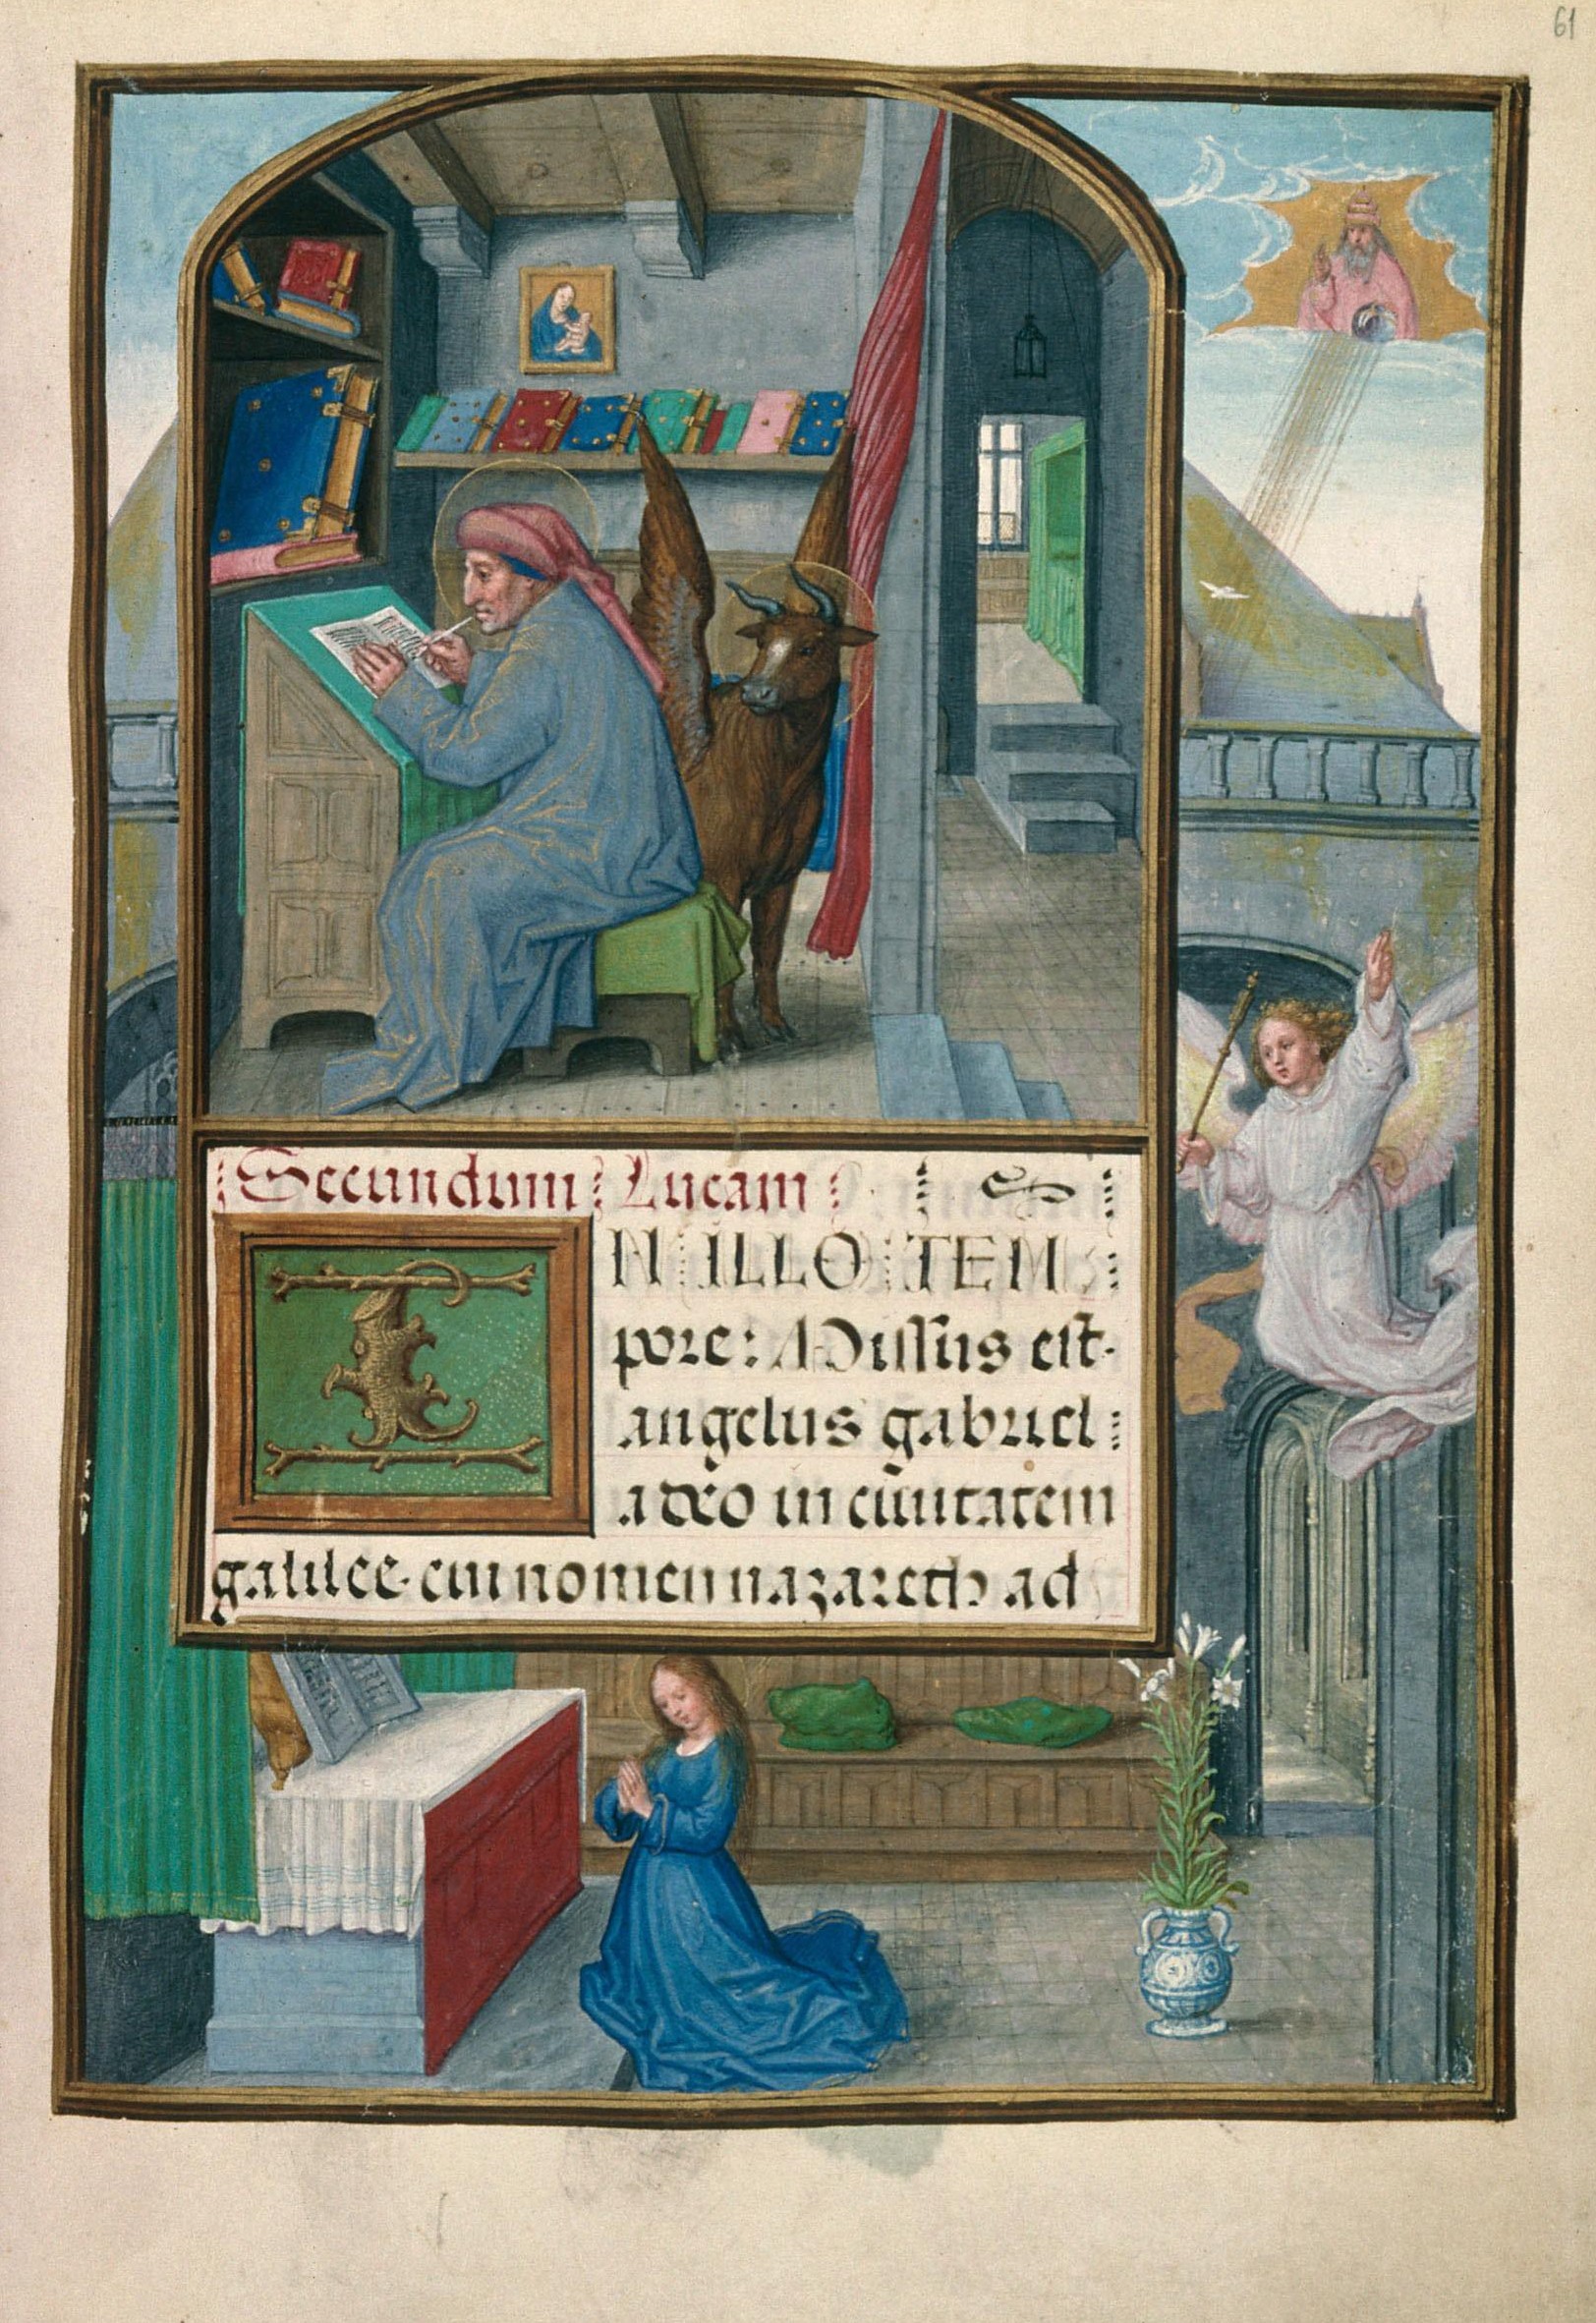 61
Secundum Lucam
IN ILLO TEM
pore: Missus est
angelus gabriel
a deo in ciuitatem
galilee. cui nomen nazareth ad